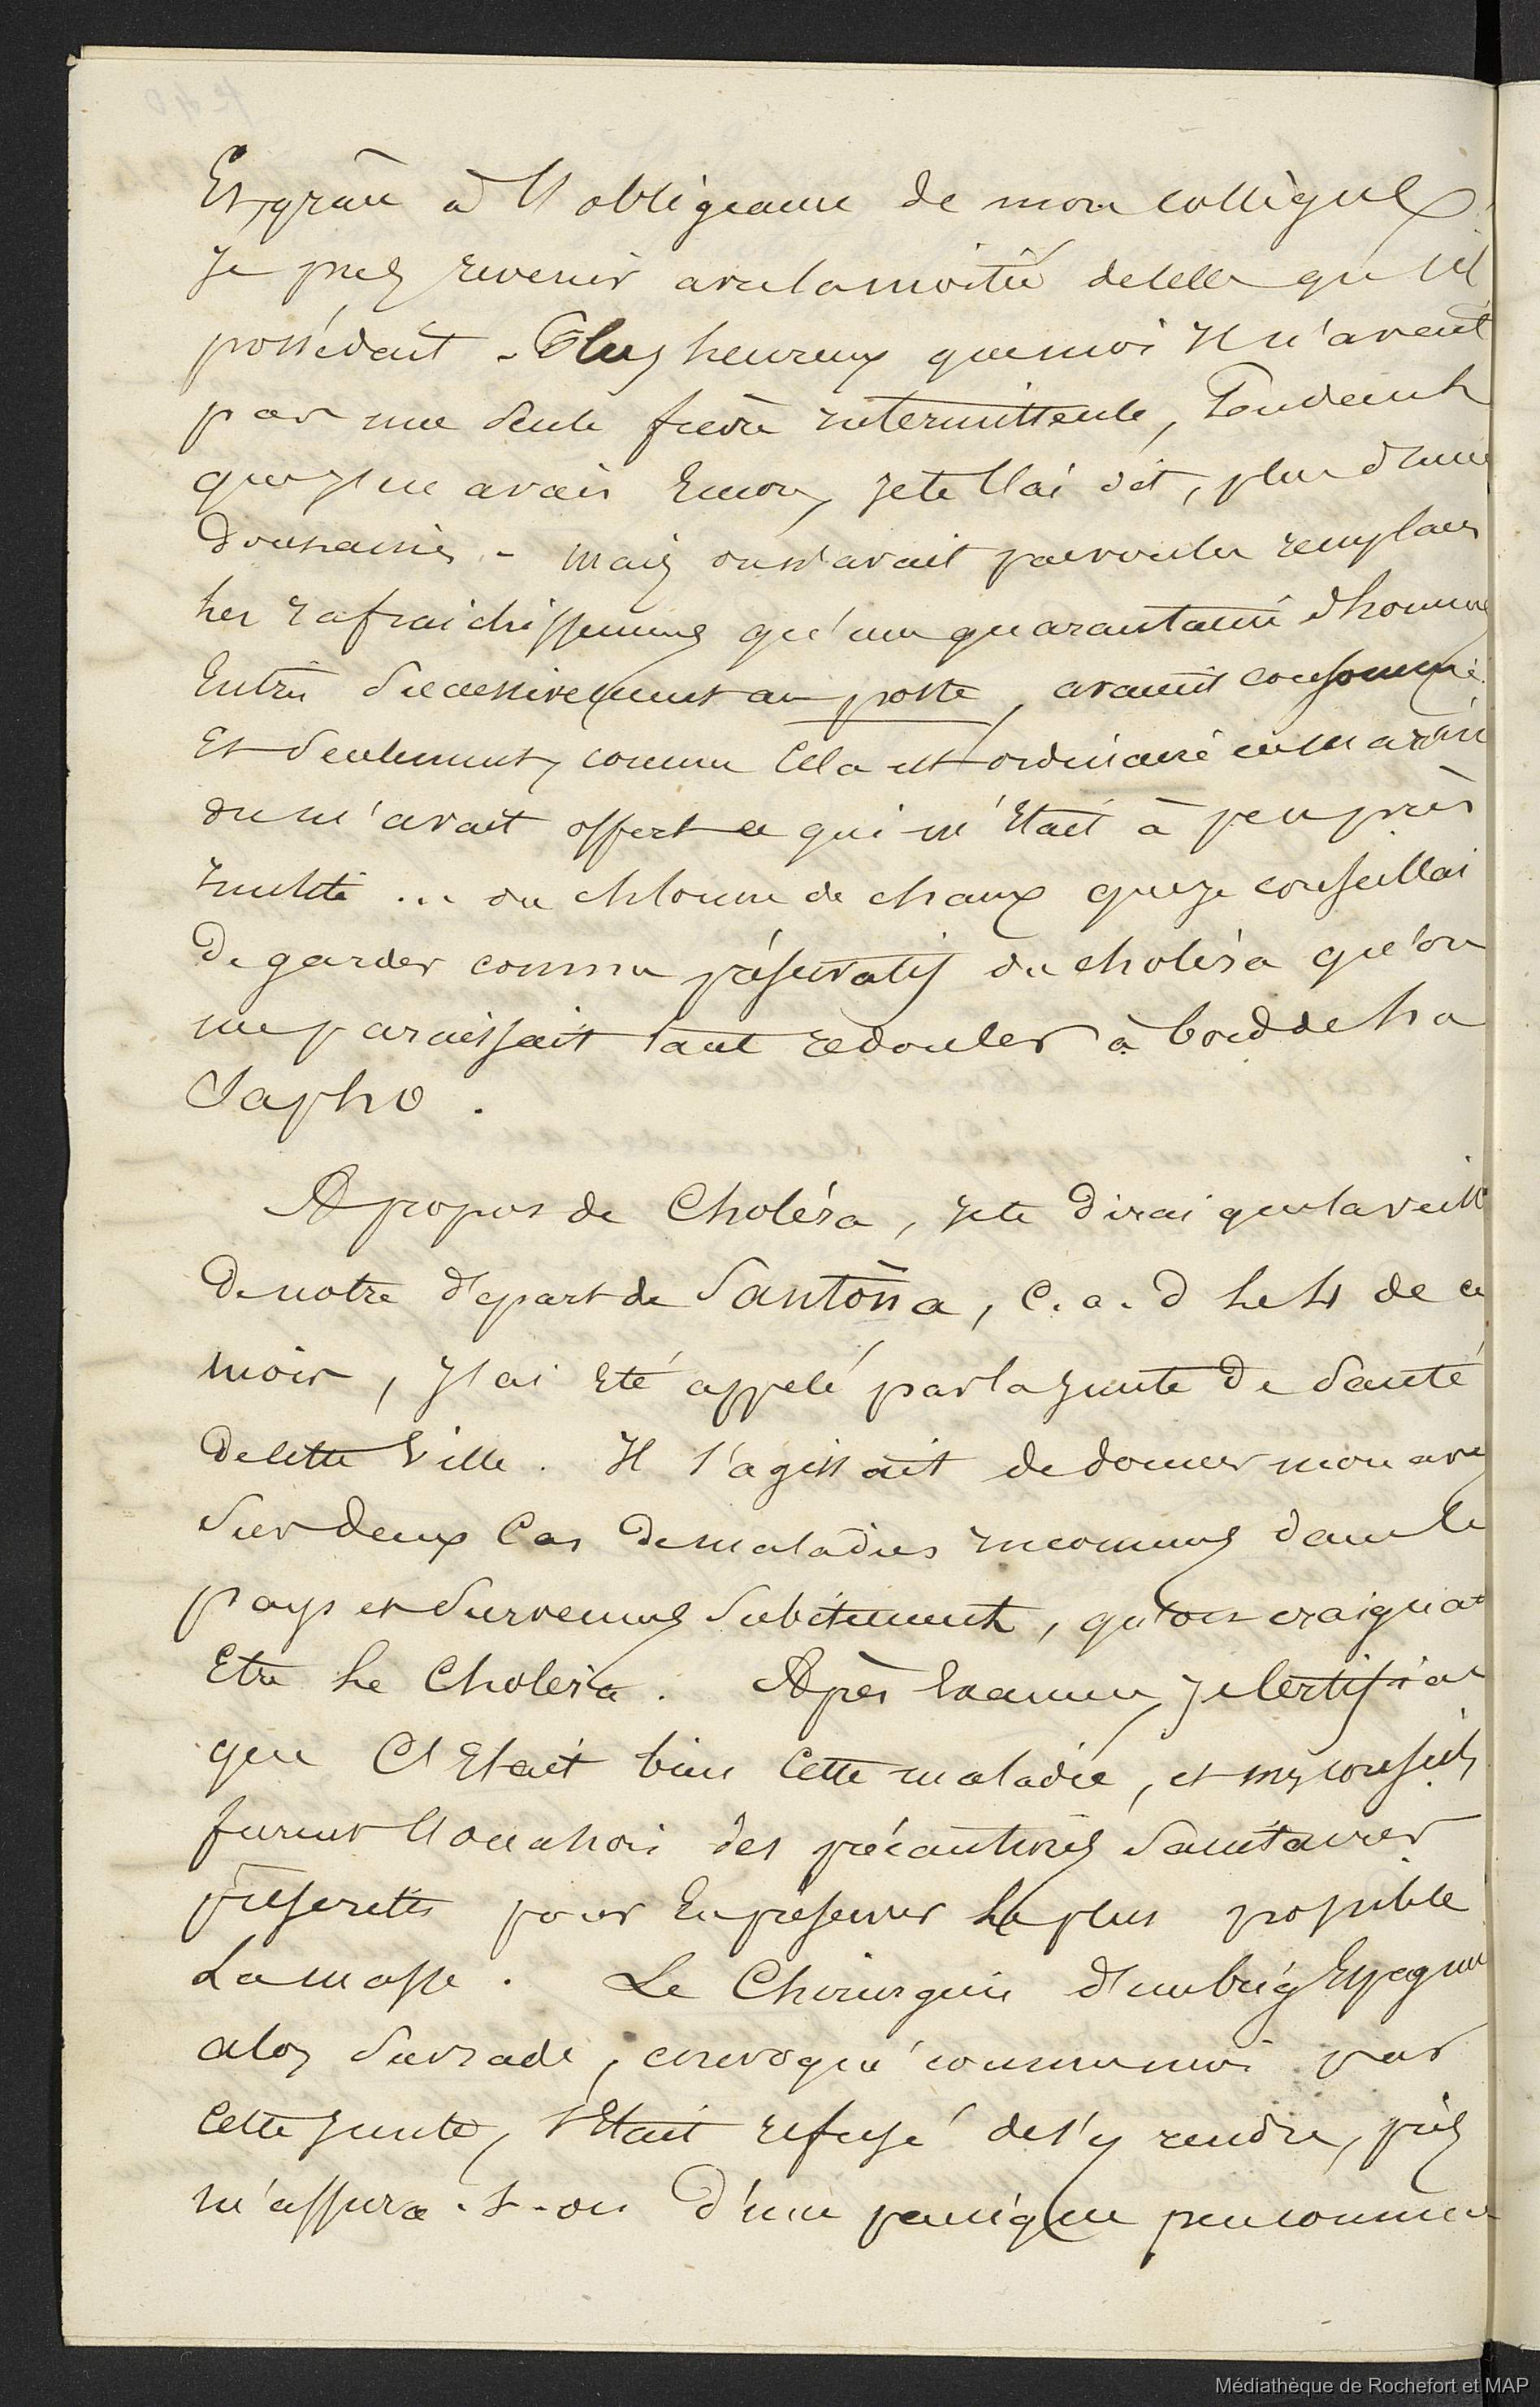 Et, grâce à l'obligeance de mon collègue
je pus revenir avec la moitié de celle qu'il
possédait - Plus heureux que moi il n'avait
pas une seule fièvre intermittente, Pendant
que j'en avais encore, je te l'ai dit, plus d'une
douzaine - mais on n'avait pas voulu remplacer
les rafraichissemens qu'une quarantaine d'hommes
Entrés successivement au poste, avaient consommé
Et seulement, comme cela est ordinaire en marine
on m'avait offert ce qui m'était à peu près
inutile ... du chlorure de chaux que je conseillai
de garder comme préservatif du choléra qu'on
me paraissait tant redouter à bord de la
Sapho.
A propos de Choléra, je te dirai que la veille
de notre départ de Santoña, c. a. d le 4 de ce
mois, j'ai été appelé par la junte de Santé
de cette ville. Il s'agissait de donner mon avis
Sur deux cas de maladies inconnues dans le
pays et survenues subitement, qu'on craignait
être le Choléra. Après Examen, je certifiai
que C'Etait bien cette maladie, et mes conseils
furent l'ou choix des précautions Sanitaires
prescrites pour En préserver le plus possible
La masse. Le Chirurgien d'un brig Espagnol
alors sur rade, convoqué comme moi par
cette junte, s'Etait refusé de s'y rendre, pris
m'assura-t-on d'une panique peu connue